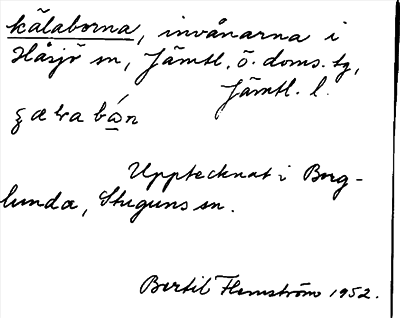 kälaborna, invånarna i
Håsjö sn, Jämtl. ö. doms. tg,
Jämtl. l.
Upptecknat i Borg-
lunda, Stuguns sn.
Bertil Flemström 1952.